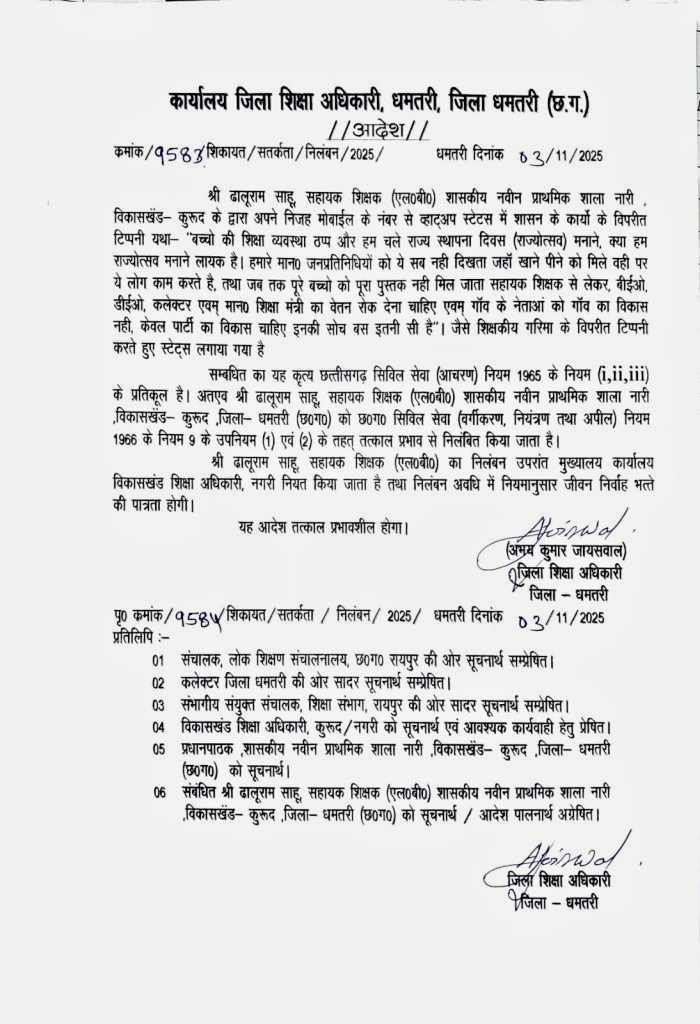 कार्यालय जिला शिक्षा अधिकारी, धमतरी, जिला धमतरी (छ.ग.)
//आदेश//
कमांक/9583/शिकायत/सतर्कता/निलंबन/2025/ धमतरी दिनांक 03/11/2025
श्री ढालूराम साहू, सहायक शिक्षक (एल0बी0) शासकीय नवीन प्राथमिक शाला नारी ,
विकासखंड– कुरूद के द्वारा अपने निजह मोबाईल के नंबर से व्हाट्अप स्टेटस में शासन के कार्यो के विपरीत
टिप्पनी यथा– "बच्चो की शिक्षा व्यवस्था ठप्प और हम चले राज्य स्थापना दिवस (राज्योत्सव) मनाने, क्या हम
राज्योत्सव मनाने लायक है। हमारे मान0 जनप्रतिनिधियों को ये सब नही दिखता जहॉ खाने पीने को मिले वही पर
ये लोग काम करते है, तथा जब तक पूरे बच्चो को पूरा पुस्तक नही मिल जाता सहायक शिक्षक से लेकर, बीईओ,
डीईओ, कलेक्टर एवम् मान0 शिक्षा मंत्री का वेतन रोक देना चाहिए एवम् गॉव के नेताओं को गॉव का विकास
नही, केवल पार्टी का विकास चाहिए इनकी सोच बस इतनी सी है"। जैसे शिक्षकीय गरिमा के विपरीत टिप्पनी
करते हुए स्टेट्स लगाया गया है
सम्बधित का यह कृत्य छत्तीसगढ़ सिविल सेवा (आचरण) नियम 1965 के नियम (i,ii,iii)
के प्रतिकूल है। अतएव श्री ढालूराम साहू, सहायक शिक्षक (एल0बी0) शासकीय नवीन प्राथमिक शाला नारी
,विकासखंड– कुरूद ,जिला– धमतरी (छ0ग0) को छ0ग0 सिविल सेवा (वर्गीकरण, नियंत्रण तथा अपील) नियम
1966 के नियम 9 के उपनियम (1) एवं (2) के तहत् तत्काल प्रभाव से निलंबित किया जाता है।
श्री ढालूराम साहू, सहायक शिक्षक (एल0बी0) का निलंबन उपरांत मुख्यालय कार्यालय
विकासखंड शिक्षा अधिकारी, नगरी नियत किया जाता है तथा निलंबन अवधि में नियमानुसार जीवन निर्वाह भत्ते
की पात्रता होगी।
यह आदेश तत्काल प्रभावशील होगा।
(अभय कुमार जायसवाल)
जिला शिक्षा अधिकारी
जिला – धमतरी
पृ0 कमांक/9584/शिकायत/सतर्कता / निलंबन/ 2025/ धमतरी दिनांक 03/11/2025
प्रतिलिपि :–
01 संचालक, लोक शिक्षण संचालनालय, छ0ग0 रायपुर की ओर सूचनार्थ सम्प्रेषित।
02 कलेक्टर जिला धमतरी की ओर सादर सूचनार्थ सम्प्रेषित।
03 संभागीय संयुक्त संचालक, शिक्षा संभाग, रायपुर की ओर सादर सूचनार्थ सम्प्रेषित।
04 विकासखंड शिक्षा अधिकारी, कुरूद/नगरी को सूचनार्थ एवं आवश्यक कार्यवाही हेतु प्रेषित।
05 प्रधानपाठक ,शासकीय नवीन प्राथमिक शाला नारी ,विकासखंड– कुरूद ,जिला– धमतरी
(छ0ग0) को सूचनार्थ।
06 संबंधित श्री ढालूराम साहू, सहायक शिक्षक (एल0बी0) शासकीय नवीन प्राथमिक शाला नारी
,विकासखंड– कुरूद ,जिला– धमतरी (छ0ग0) को सूचनार्थ / आदेश पालनार्थ अग्रेषित।
जिला शिक्षा अधिकारी
जिला – धमतरी